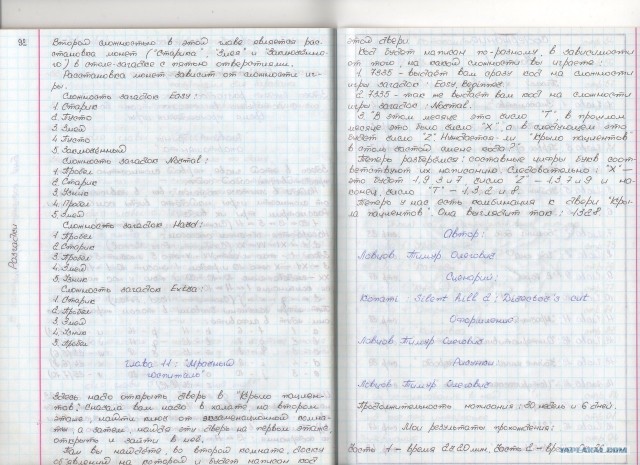 92
Второй сложностью в этой главе является рас-
становка монет ("Старика", "Змея" и "Заключённо-
го") в столе-загадке с пятью отверстиями.
Расстановка монет зависит от сложности иг-
ры.
Сложность загадок Easy:
1. Старик
2. Пусто
3. Змей
4. Пусто
5. Заключённый
Сложность загадок Normal:
1. Пробел
2. Старик
3. Узник
4. Пробел
5. Змей
Сложность загадок Hard:
1. Пробел
2. Старик
3. Пробел
4. Змей
5. Узник
Сложность загадок Extra:
1. Старик
2. Пробел
3. Змей
4. Узник
5. Пробел
Разгадки
Глава 11: "Мрачный
Здесь надо открыть дверь в "Крыло пациен-
тов". Сначала вам надо в палате на втором
этаже найти ключ от экзаменационной комна-
ты, а затем, найдя эту дверь на первом этаже
открыть и зайти в неё.
Там вы найдёте, во второй комнате, доску
объявлений на которой и будет написан код
этой двери.
Код будет написан по-разному, в зависимости
от того, на какой сложности вы играете:
1. 7335 - выдаёт вам сразу код на сложности
игры загадок: Easy,
2. 7335 - так же выдаёт вам код на сложности
игры загадок: Normal.
3. "В этом месяце это число "T", в прошлом
месяце это было число "X", а в следующем это
будет число "Z". Нуждается ли "Крыло пациентов
в этом частой смене кода?"
Теперь разберёмся: составные цифры букв соот-
ветствуют их написанию. Следовательно: "X" -
это будут 1, 9, 3 и 7 число "Z" - 1, 3, 7 и 9 и на-
конец, число "T" - 1, 3, 2 и 8.
Теперь у нас есть комбинация к двери "Кры-
ла пациентов". Она выглядит так: 1328.
Автор:
Тимур Олегович
Сценарий:
Konami Silent hill 2: Director's cut
Оформление:
Тимур Олегович
Рисунки:
Тимур Олегович
Продолжительность написания: 30 недель и 6 дней.
Мои результаты прохождения:
Часть 1 - время 2:20 мин. Часть 2 - время
YAPLAKAL.COM